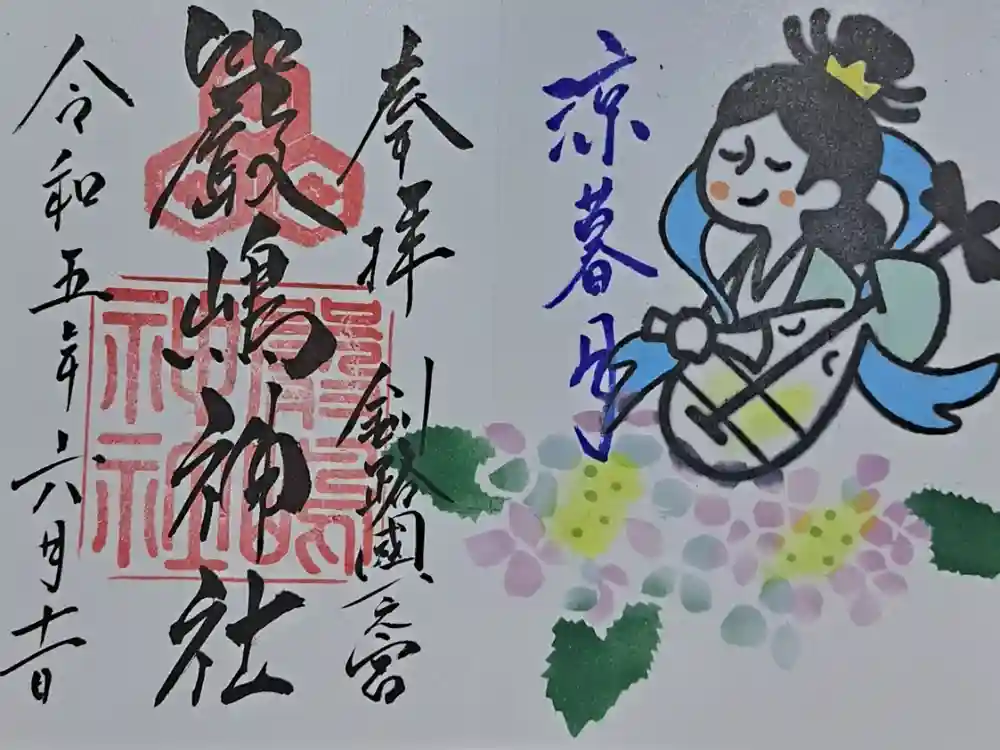 涼暮月
奉拝 釧路國一之宮
嚴嶋神社
令和五年六月十一日